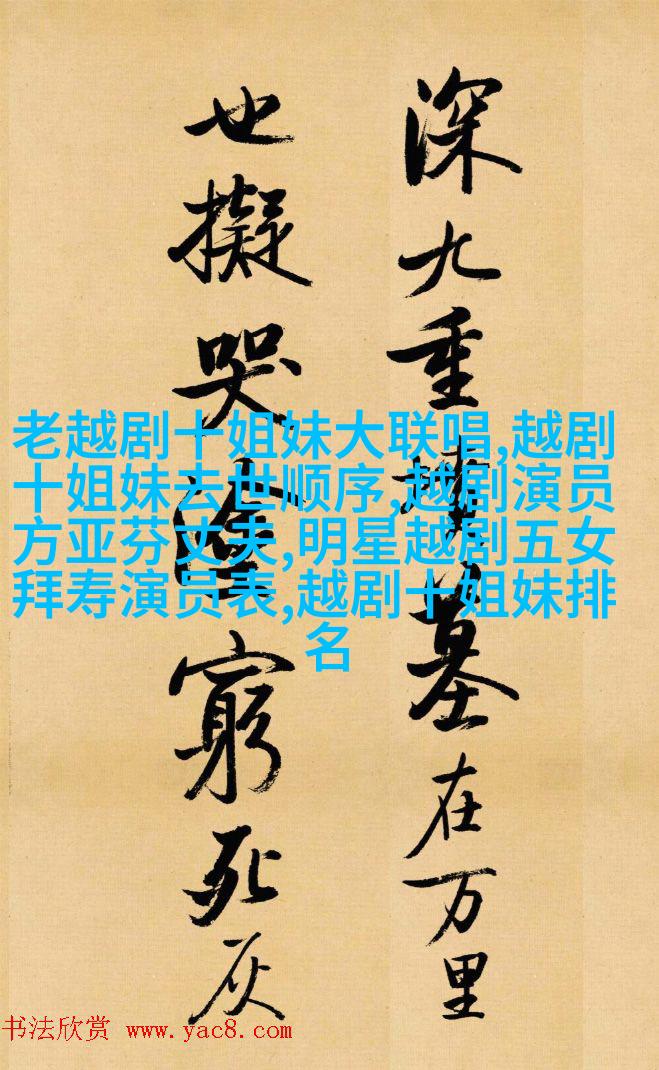 深九重墳墓在万里
也擬哭窮死灰
老越剧十姐妹大联唱,越剧
十姐妹去世顺序,越剧演员
方亚芬丈夫,明星越剧五女
拜寿演员表,越剧十姐妹排
名
书法欣赏 www.yac8.com